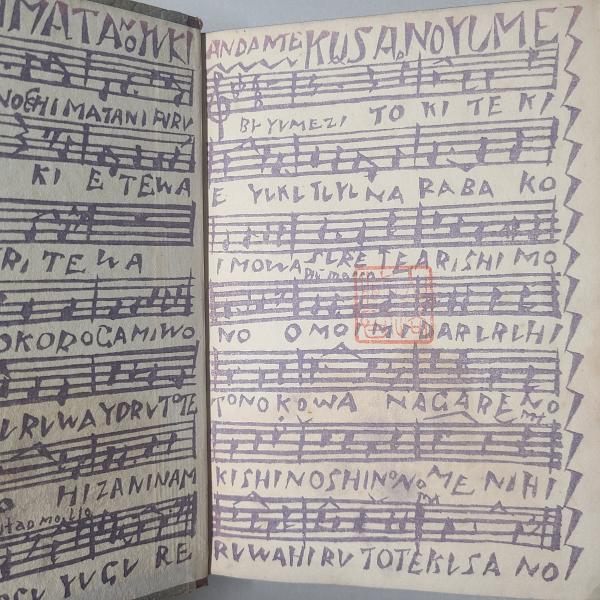 IMATA NO YUKI
NO CHIMATANI FURU
KI E TEWA
RI TE WA
OKOROGAMIWO
URUWA YORU TOTE
HIZANINAM
YUGU RE
ANDANTE KUSA NO YUME
BY YUMEZI TO KI TE KI
E YUKU TUYU NA RABA KO
IMOWA SURE TE ARISHI MO
NO OMO IMIDARURU HI
TONOKOWA NAGARE NO
KISHINOSHINO NO ME NI HI
RUWAHIRU TOTE KUSA NO